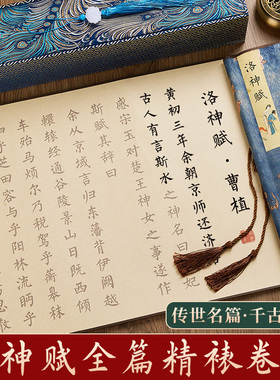 洛神赋
洛神赋·曹植
黄初三年余朝京师还济
古人有言斯水之神名曰
感宋玉对楚王神女之事遂作
斯赋其辞曰
余从京域言归东藩背伊阙越
轘辕经通谷陵景山日既西倾
车殆马烦尔乃税驾乎蘅皋秣
乎芝田容与乎阳林流眄乎
传世名篇·千古
神赋全篇精裱卷